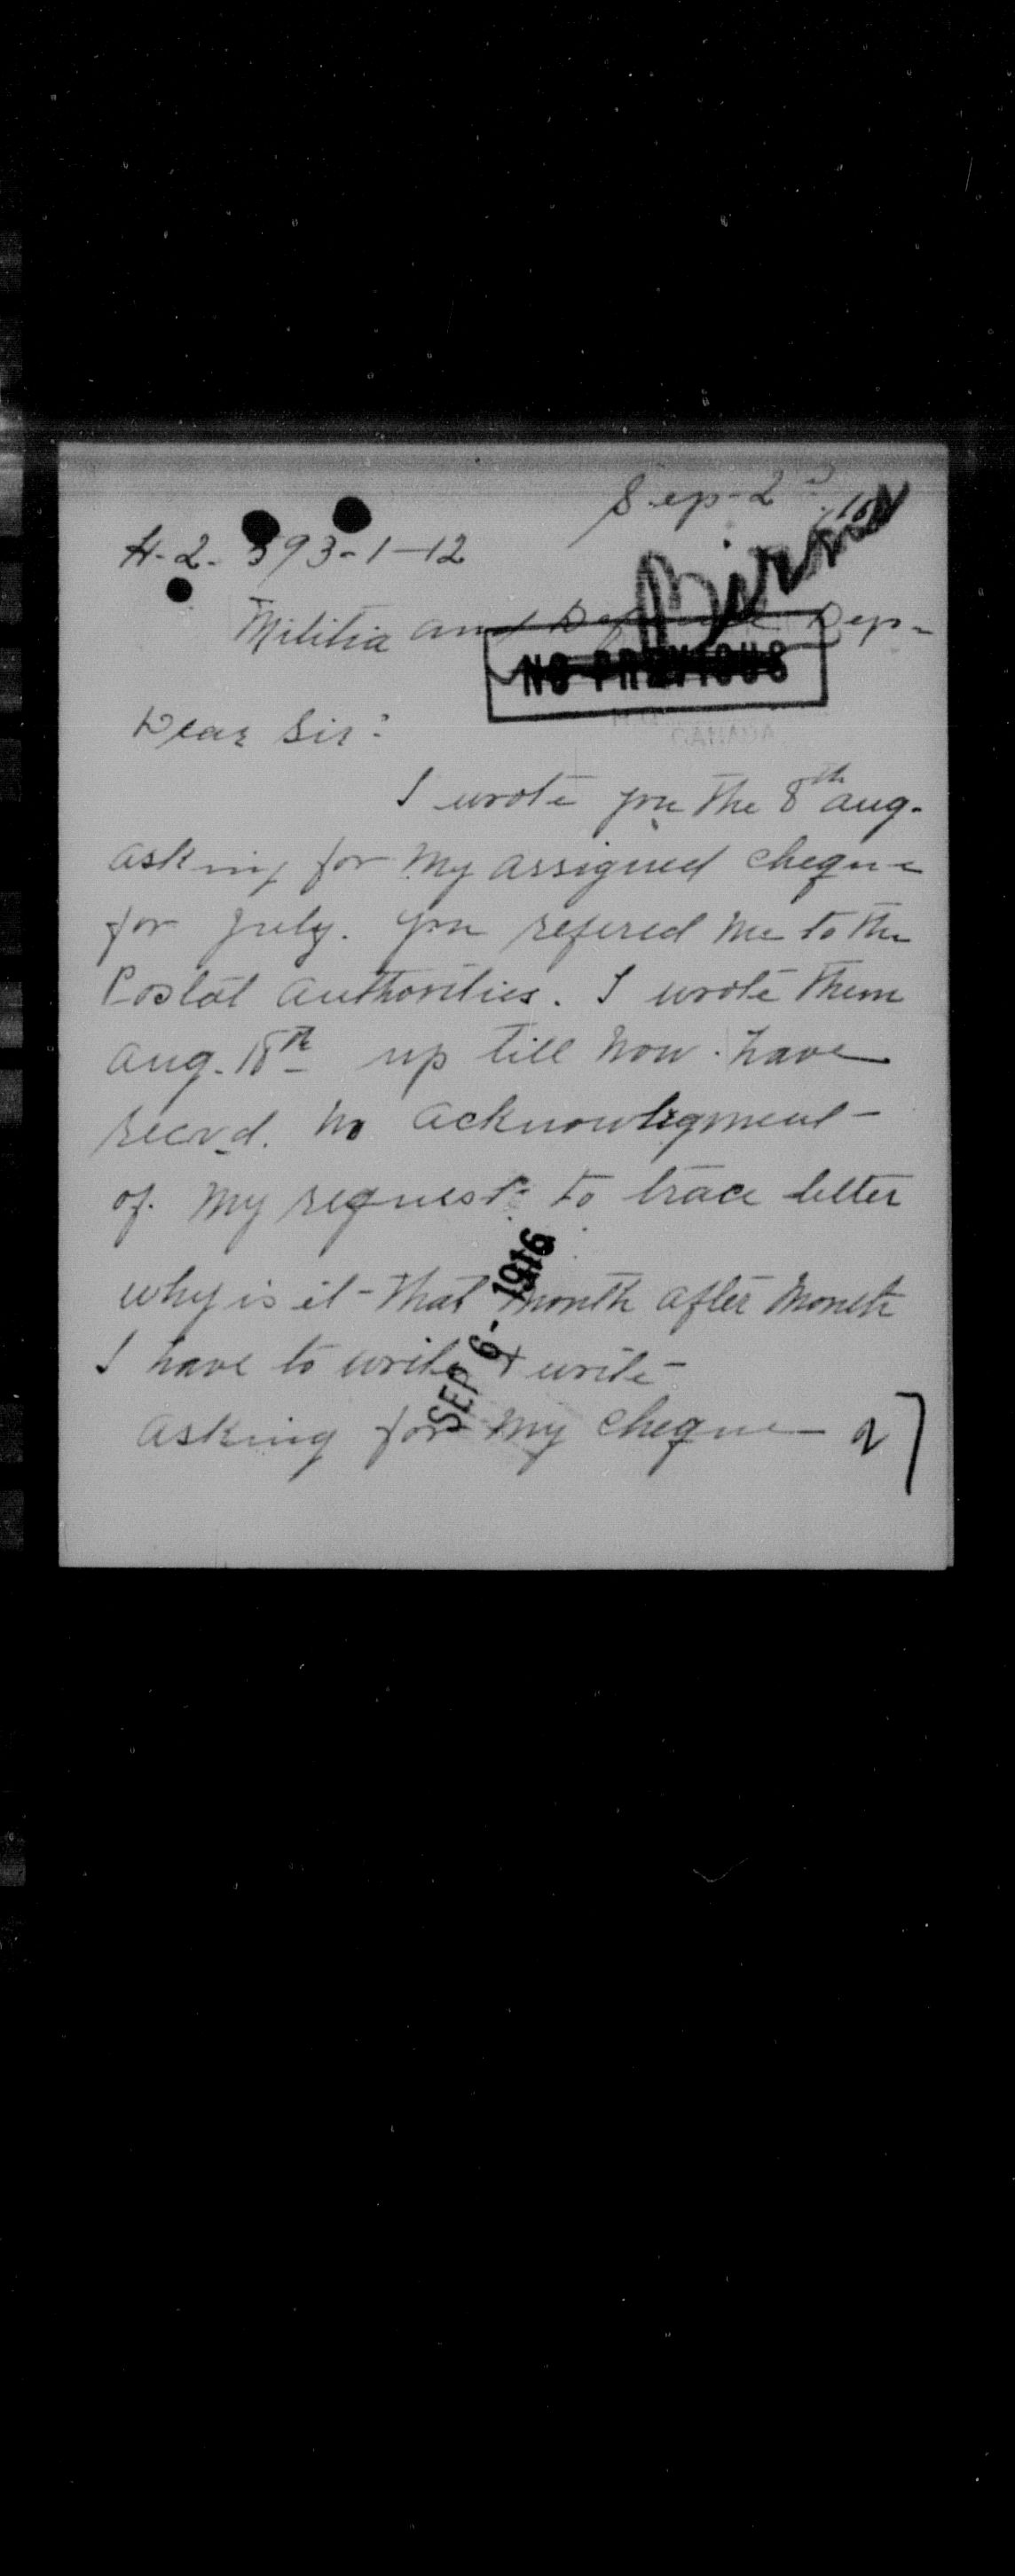 Sep-2nd /16
H-2- 393-1-12
Militia and Defence Dep-
NO PREVIOUS
CANADA
Dear Sir:
I wrote you the 8th aug-
asking for my assigned cheque
for July. you refered me to the
Postal Authorities. I wrote them
aug. 18th up till now have
recvd. no acknowlegment-
of. my request to trace letter
why is it - that month after month
I have to write & write-
SEP 6- 1916
asking for my cheque
27